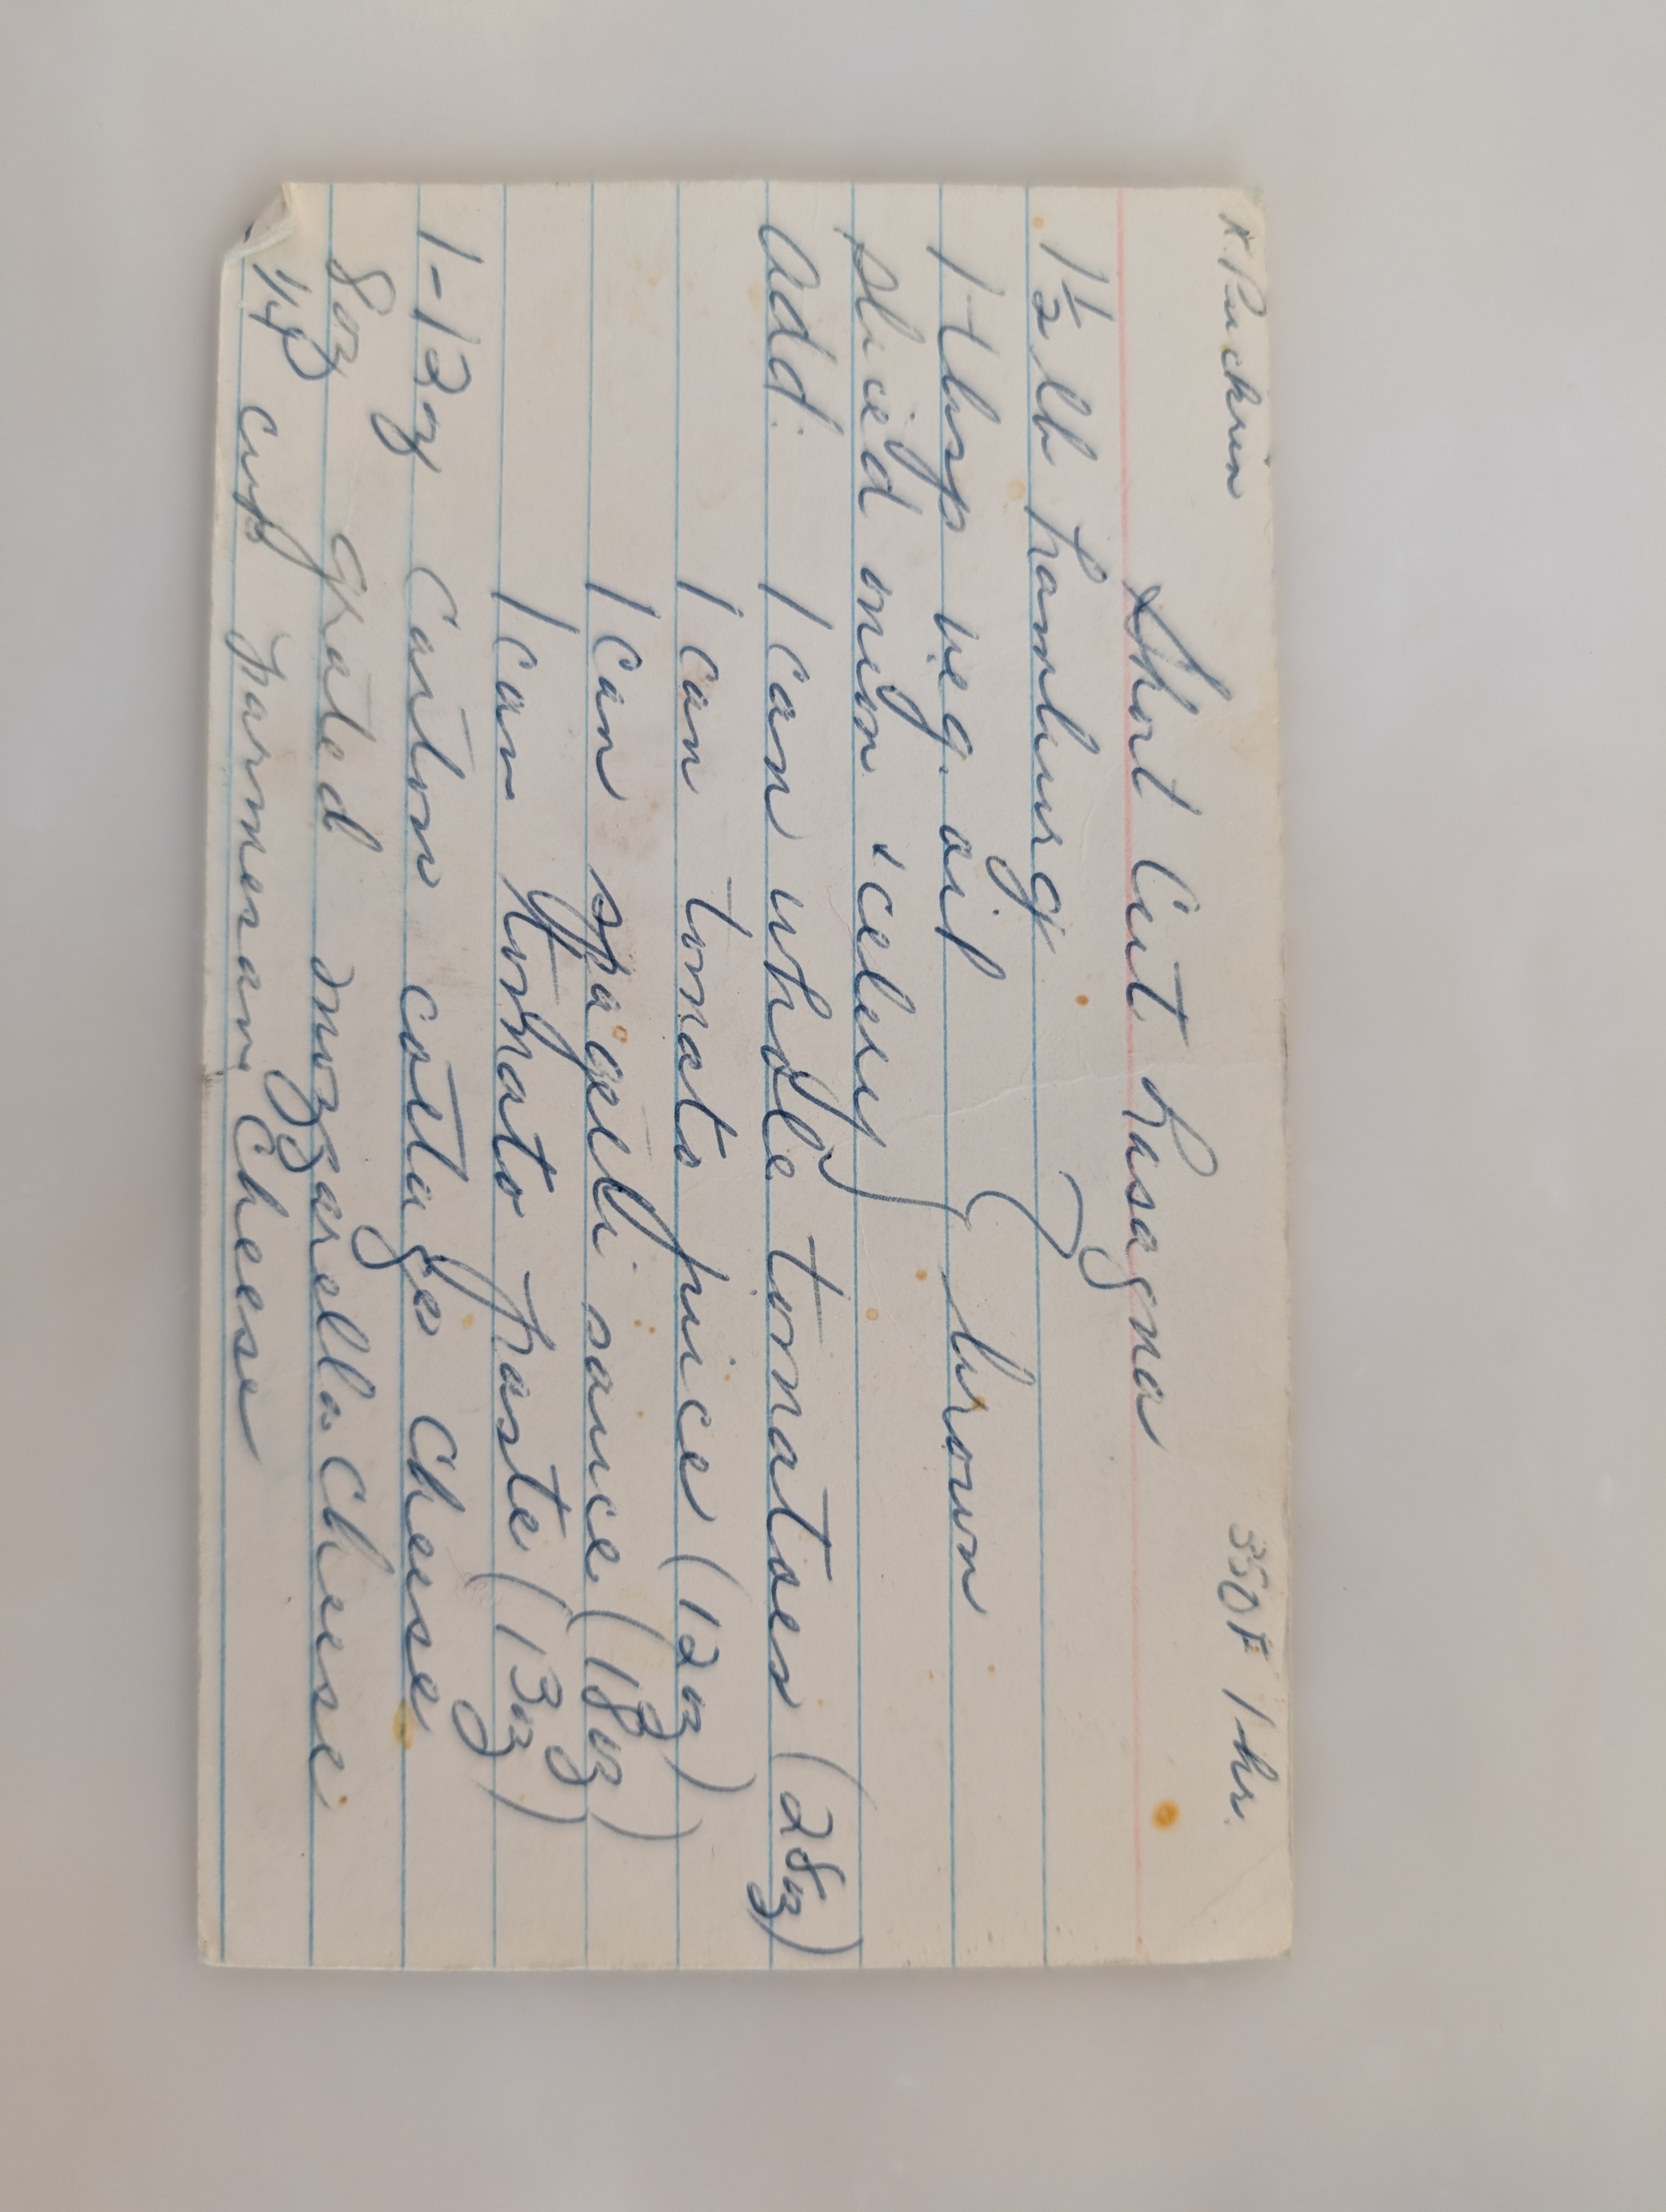 K. Puckrin 350F 1 hr.
Short Cut Lasagna
1½ lb hamburg
1 tbsp veg. oil } brown
sliced onion & celery
add: 1 can whole tomatoes (28oz)
1 can tomato juice (12oz)
1 can spagetti sauce (18oz)
1 can tomato paste (13oz)
1-12oz carton cottage cheese
8oz grated mozzarella cheese
1/4 cup parmesan cheese